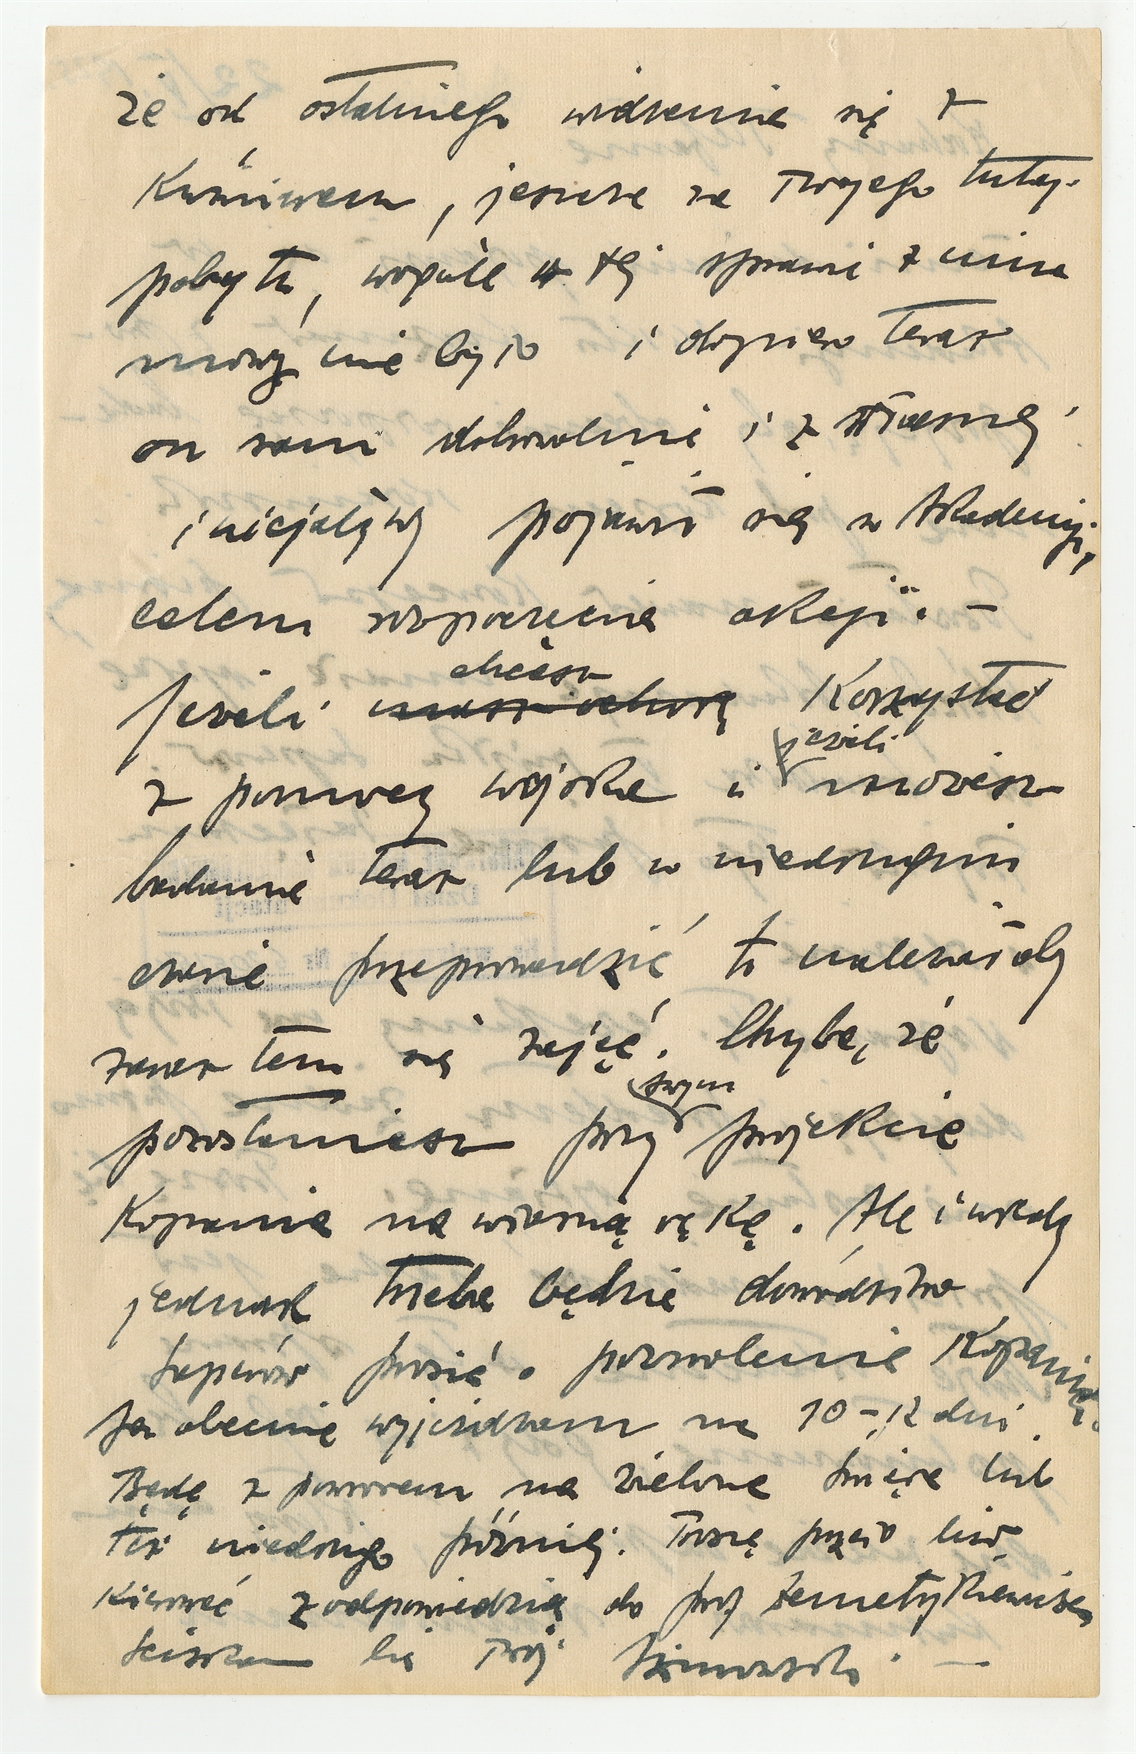 że od ostatniego widzenia się z
Kuśniwem, jeszcze za Twojego tutaj.
pobytu, wogóle w tej sprawie z nim
mowy nie było i dopiero teraz
on sam dobrowolnie i z własnej
inicjatywy pojawił się w Akademji,
celem rozpoczęcia akcji. —
Jeżeli chcesz Korzystać
z pomocy wojska i jeżeli możesz
badanie teraz lub w niedługim
czasie przeprowadzić to należałoby
zaraz tem się zająć. Chyba, że
pozostaniesz przy swym projekcie
Kopania na własną rękę. Ale i wtedy
jednak trzeba będzie dowództwo
saperów prosić o pozwolenie Kopania.
Ja obecnie wyjeżdżam na 10–12 dni
Będę z powrotem na Zielone Święta lub
też niedługo później. Proszę przeto
Kierować z odpowiedzią do prof Demetrykiewicza
Ściskam Cię Twój